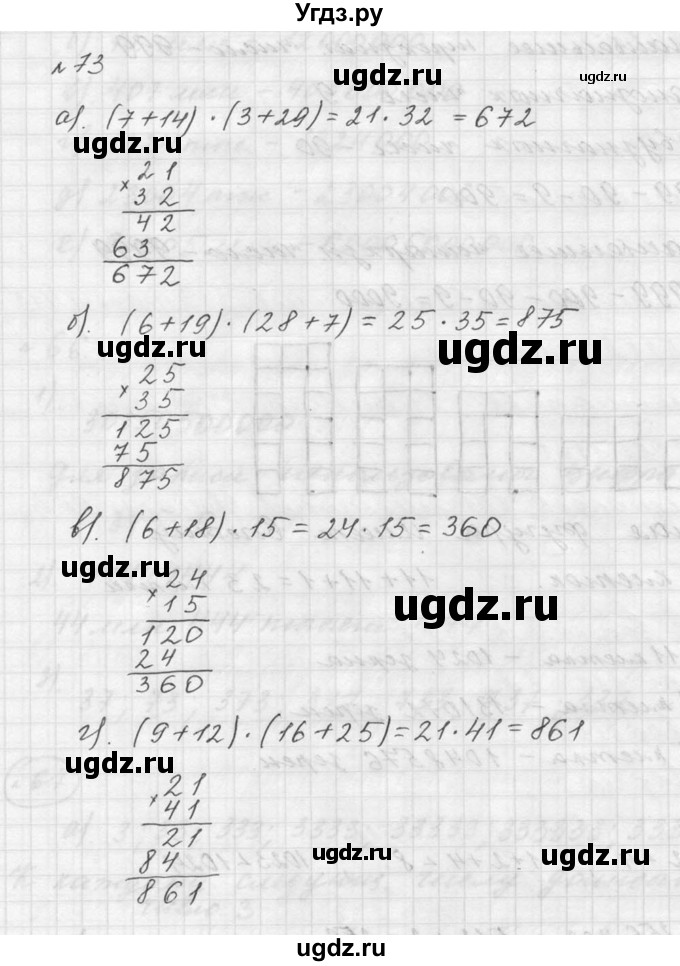 Угдз.ру
№73
ugdz.ru
а). (7+14)·(3+29)=21·32 =672
ugdz.ru
×21
32
42
63
672
б). (6+19)·(28+7)=25·35=875
ugdz.ru
ugdz.ru
×25
35
125
75
875
в). (6+18)·15=24·15=360
ugdz.ru
ugdz.ru
×24
15
120
24
360
г). (9+12)·(16+25)=21·41=861
ugdz.ru
×21
41
21
84
861
ugdz.ru
ugdz.ru
ugdz.ru